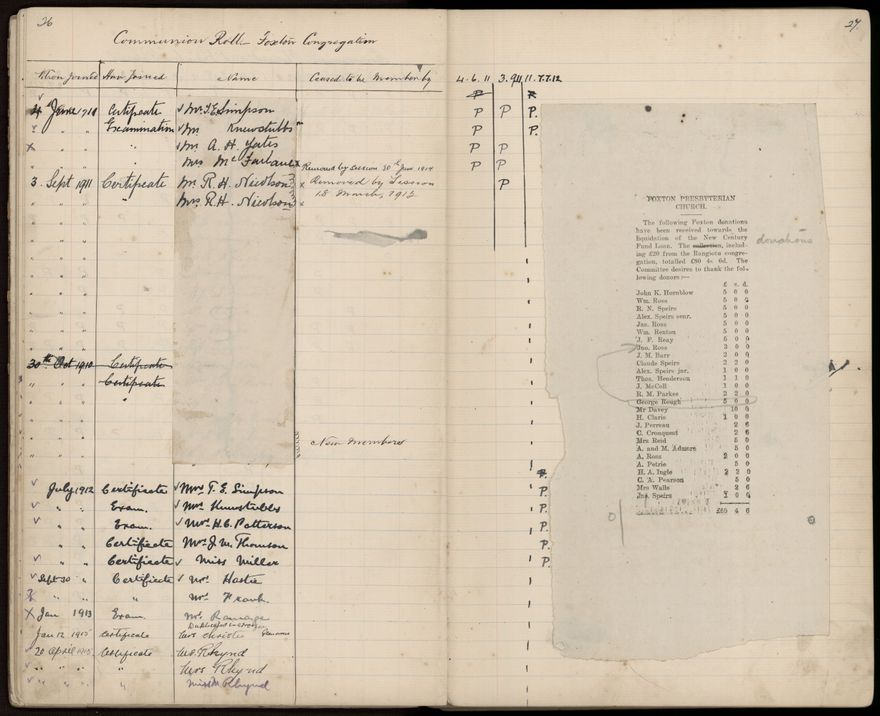 26
Communion Roll - Foxton Congregation
When Joined How Joined Name Ceased to be Member by
4th June 1911 Certificate Mr T. E. Simpson
" " " Examination Mr Knewstubbs
" " " " Mr A. H. Yates
" " " " Mrs McFarlane Removed by Session 30th June 1914
3. Sept 1911 Certificate Mr. R. H. Nicolson Removed by Session
" " " " Mrs R. H. Nicolson 18 March, 1912
30th Oct 1910 Certificate
" " " Certificate
" " " "
New Members
July 1912 Certificate Mrs T. E. Simpson
" " Exam. Mrs Knewstubbs
" " Exam. Mrs. H. C. Patterson
" " Certificate Mrs. J. M. Thomson
" " Certificate Miss Miller
Sept 30 " Certificate Mrs. Hastie
" " " " Mrs. Frank
Jan 1913 Exam. Mrs.
Jan 12 1915 Certificate Mrs Christie
20 April 1915 Certificate Mr. Rhynd
" " " " Mrs Rhynd
" " " " Miss M Rhynd
27.
4.6.11 3.9.11 7.7.12
P P
P P P.
P P.
P P
P P
P
P.
P.
P.
P.
P.
P.
FOXTON PRESBYTERIAN
CHURCH.
The following Foxton donations
have been received towards the
liquidation of the New Century
Fund Loan. The collection, includ-
donations
ing £20 from the Rangiora congre-
gation, totalled £80 4s 6d. The
Committee desires to thank the fol-
lowing donors:—
£ s. d.
John K. Hornblow 5 0 0
Wm. Ross 5 0 0
R. N. Speirs 5 0 0
Alex. Speirs senr. 5 0 0
Jas. Ross 5 0 0
Wm. Reston 5 0 0
J. F. Reay 5 0 0
Jno. Ross 2 0 0
J. M. Barr 2 0 0
Claude Speirs 2 2 0
Alex. Speirs jnr. 1 0 0
Thos. Henderson 1 1 0
J. McColl 1 0 0
R. M. Parkes 2 2 0
George Reugh 5 0 0
Mr Davey 10 0
H. Claris 1 0 0
J. Perreau 2 6
C. Cronquest 2 6
Mrs Reid 5 0
A. and M. Admore 5 0
A. Ross 2 0 0
A. Petrie 5 0
H. A. Ingle 2 2 0
C. A. Pearson 5 0
Mrs Walls 2 6
Jno. Speirs 1 0 0
£60 4 6